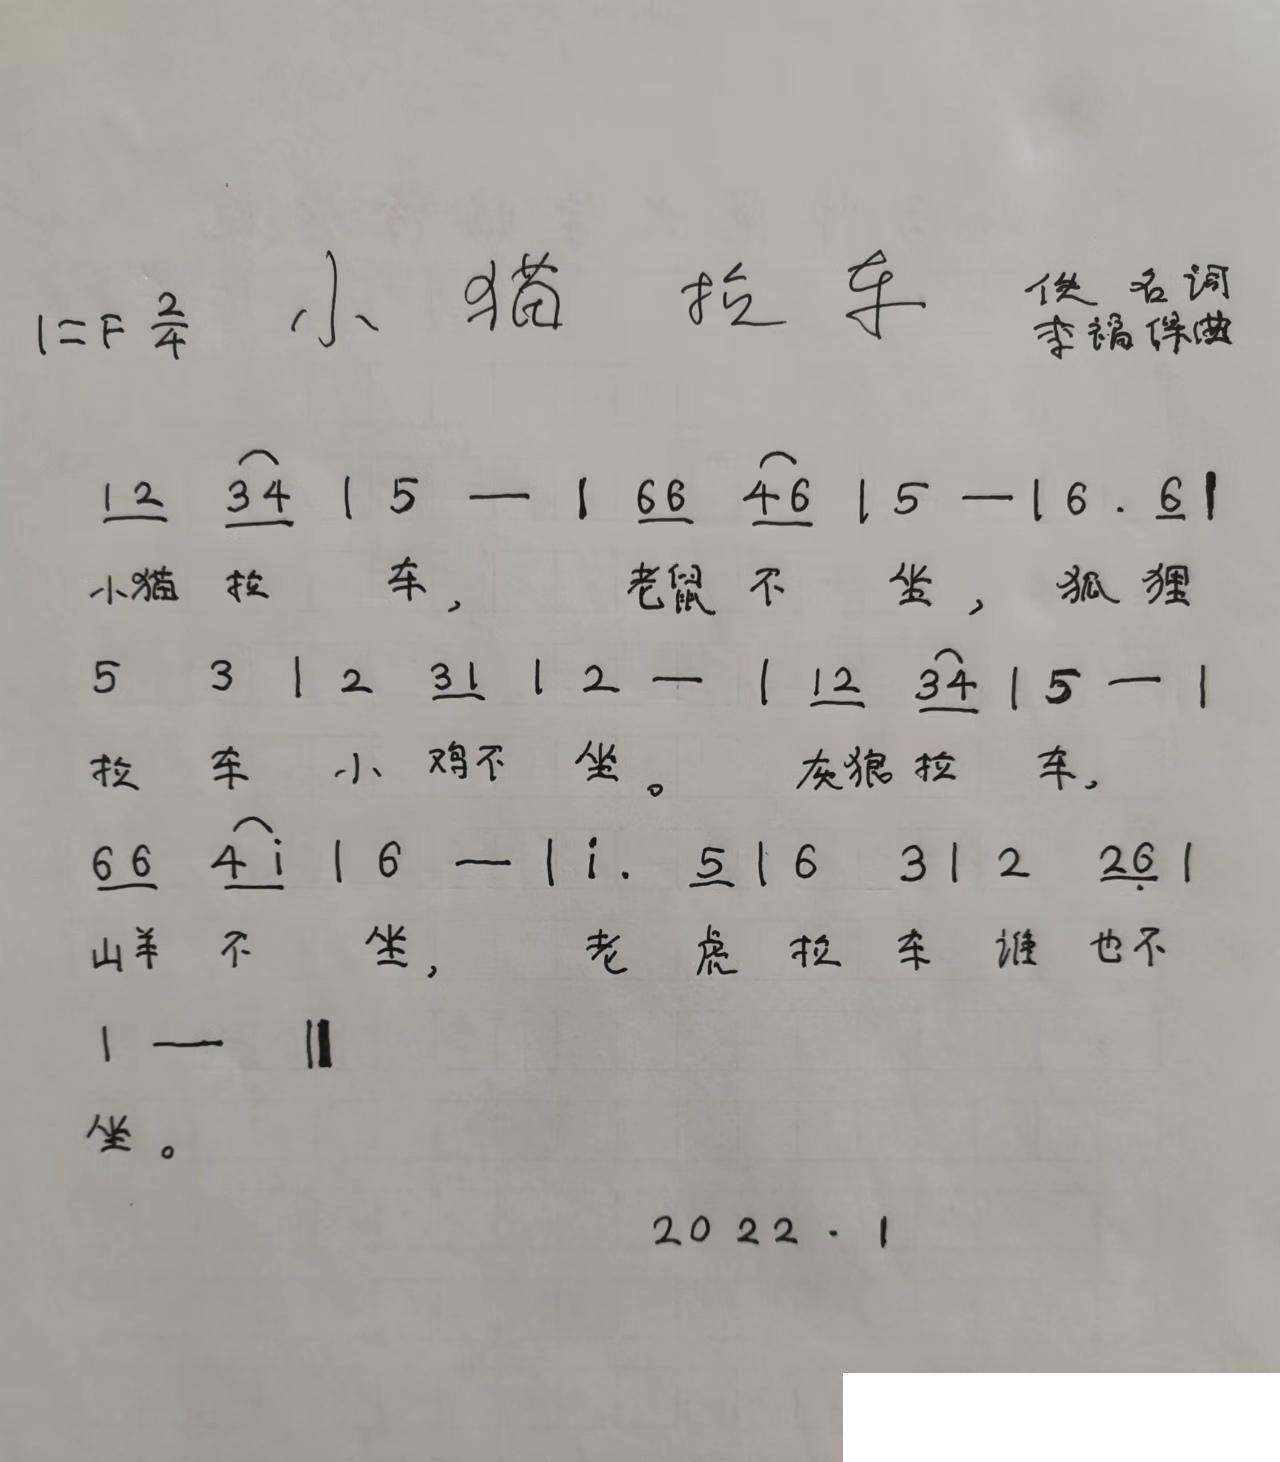 1=F 2/4 小猫拉车 佚名词
李福保曲
12 34 | 5 — | 66 46 | 5 — | 6 . 6 |
小猫 拉 车， 老鼠 不 坐， 狐 狸
5 3 | 2 31 | 2 — | 12 34 | 5 — |
拉 车 小 鸡不 坐。 灰狼 拉 车，
66 4i | 6 — | i . 5 | 6 3 | 2 26 |
山羊 不 坐， 老 虎 拉 车 谁 也不
1 — ‖
坐。
2022.1